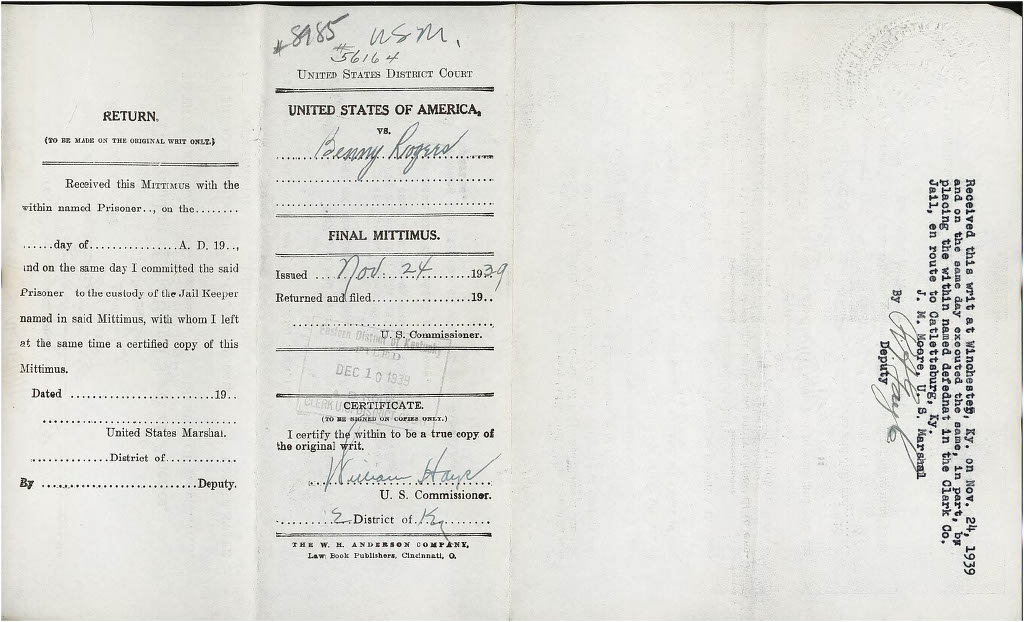 RETURN.
(TO BE MADE ON THE ORIGINAL WRIT ONLY.)
Received this MITTIMUS with the
within named Prisoner.., on the........
......day of................A. D. 19..,
and on the same day I committed the said
Prisoner to the custody of the Jail Keeper
named in said Mittimus, with whom I left
at the same time a certified copy of this
Mittimus.
Dated ..........................19..
United States Marshal.
..............District of............
By ............................Deputy.
#8985 USM.
#56164
UNITED STATES DISTRICT COURT
UNITED STATES OF AMERICA,
vs.
Benny Rogers
FINAL MITTIMUS.
Issued ... Nov. 24 ....1939
Returned and filed..................19..
U. S. Commissioner.
Eastern District of Kentucky
FILED
DEC 10 1939
CERTIFICATE.
(TO BE SIGNED ON COPIES ONLY.)
I certify the within to be a true copy of
the original writ.
William Hays
U. S. Commissioner.
E. District of Ky
THE W. H. ANDERSON COMPANY,
Law Book Publishers, Cincinnati, O.
Received this writ at Winchester, Ky. on Nov. 24, 1939
and on the same day executed the same, in part, by
placing the within named defednat in the Clark Co.
Jail, en route to Catlettsburg, Ky.
J. M. Moore, U. S. Marshal
By
Deputy